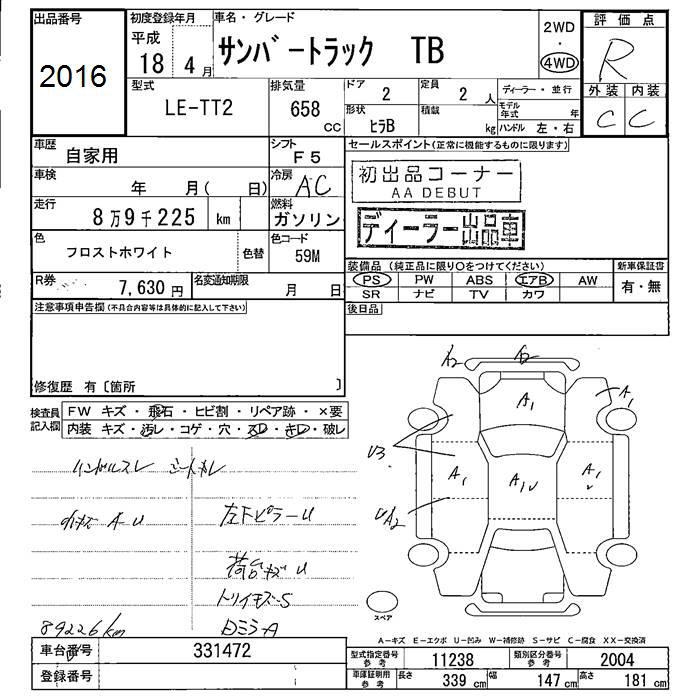 出品番号
2016
初度登録年月
平成
18 4 月
車名・グレード
サンバートラック TB
2WD
・
4WD
評価点
R
外装 内装
C C
型式
LE-TT2
排気量
658
CC
ドア
2
定員
2 人
形状
ヒラB
積載
kg
ディーラー・並行
モデル年式 年
ハンドル 左・右
車歴
自家用
シフト
F5
セールスポイント(正常に機能するものに限ります)
初出品コーナー
AA DEBUT
ディーラー出品車
車検
年 月( 日)
冷房
AC
走行
8万9千225 km
燃料
ガソリン
色
フロストホワイト
色替
色コード
59M
R券
7,630 円
名変通知期限
月 日
装備品 (純正品に限り○をつけてください)
PS PW ABS エアB AW
SR ナビ TV カワ
新車保証書
有・無
後日品
注意事項申告欄(不具合内容等は具体的に記入して下さい)
修復歴 有〔箇所 〕
検査員
記入欄
FW キズ・飛石・ヒビ割・リペア跡・×要
内装 キズ・汚レ・コゲ・穴・スレ・キレ・破レ
ハンドルスレ シートキレ
A U
左下ピラーU
荷台キズU
S
89226km
A2 A2
A1
A1
U3
A1
A1U
A1
UA2
スペア
A-キズ E-エクボ U-凹み W-補修跡 S-サビ C-腐食 XX-交換済
車台番号
331472
登録番号
型式指定番号
参考
11238
類別区分番号
参考
2004
車庫証明用
参考
長さ
339 cm
幅
147 cm
高さ
181 cm